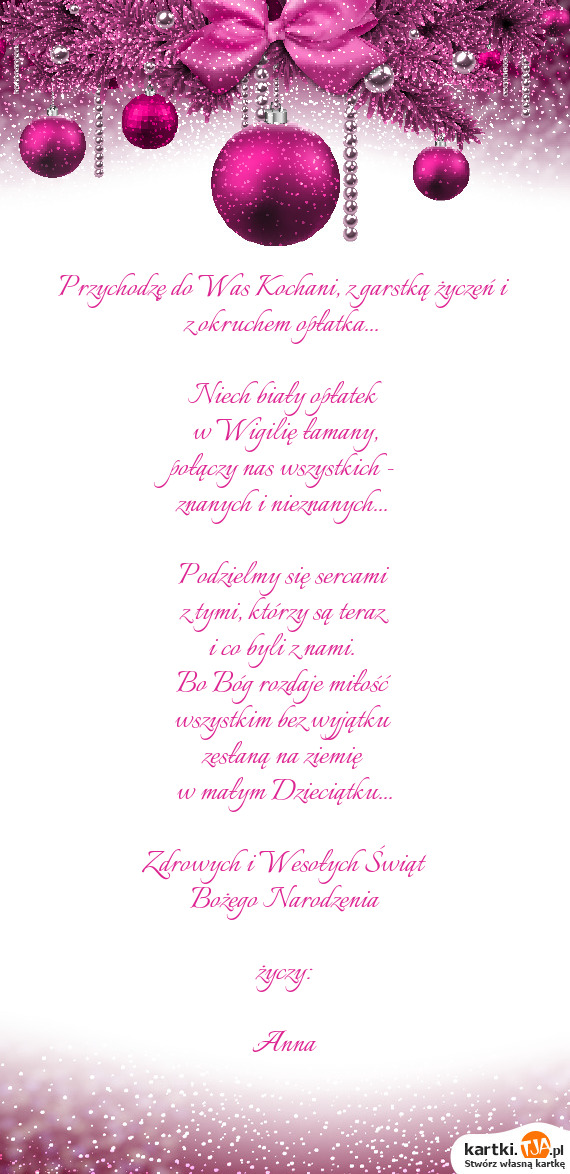 Przychodzę do Was Kochani, z garstką życzeń i
z okruchem opłatka...
Niech biały opłatek
w Wigilię łamany,
połączy nas wszystkich -
znanych i nieznanych...
Podzielmy się sercami
z tymi, którzy są teraz
i co byli z nami.
Bo Bóg rozdaje miłość
wszystkim bez wyjątku
zesłaną na ziemię
w małym Dzieciątku...
Zdrowych i Wesołych Świąt
Bożego Narodzenia
życzy:
Anna
kartki.TJA.pl
Stwórz własną kartkę